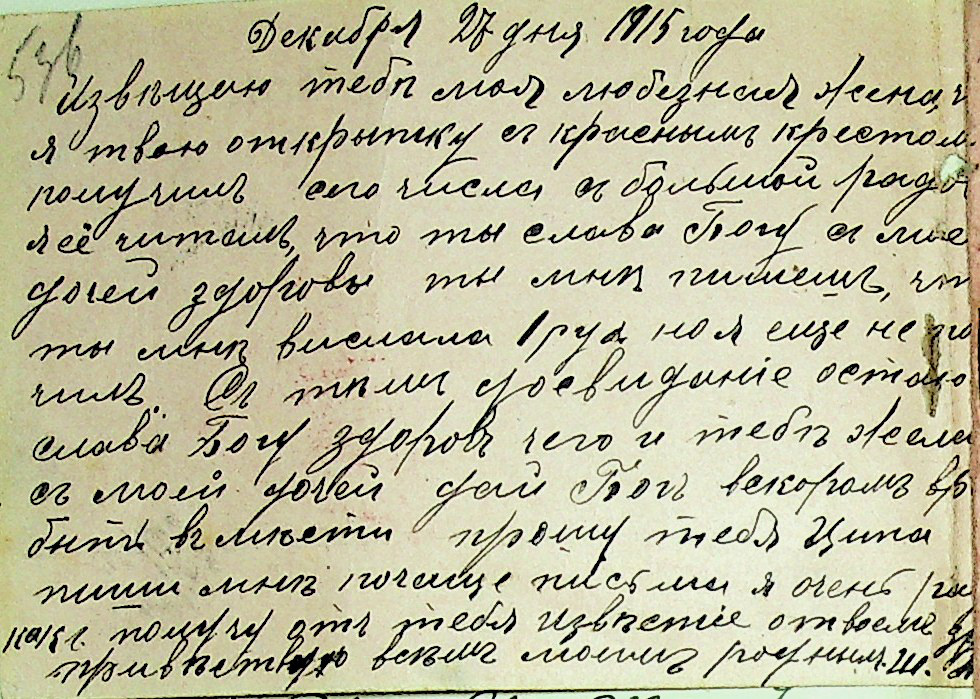 536
Декабря 27 дня 1915 года
Извѣщаю тебѣ моя любезная жена, ч
я твою открытку съ краснымъ крестом
получилъ сего числа съ большой радо
я её читалъ, что ты слава Богу с мое
дочей здоровы ты мнѣ пишешъ, чт
ты мнѣ выслала 1 руб но я еще не по
чилъ. Съ тѣмъ досвиданіе остаю
слава Богу здоровъ чего и тебѣ жела
съ моей дочей дай Богъ вскоромъ вр
быть вмѣсти прошу тебя Ципа
пиши мнѣ почаще письма я очень ра
какъ получу отъ тебя извѣстіе о твоемъ
привѣствую всѣмъ моимъ роднымъ. Ш.